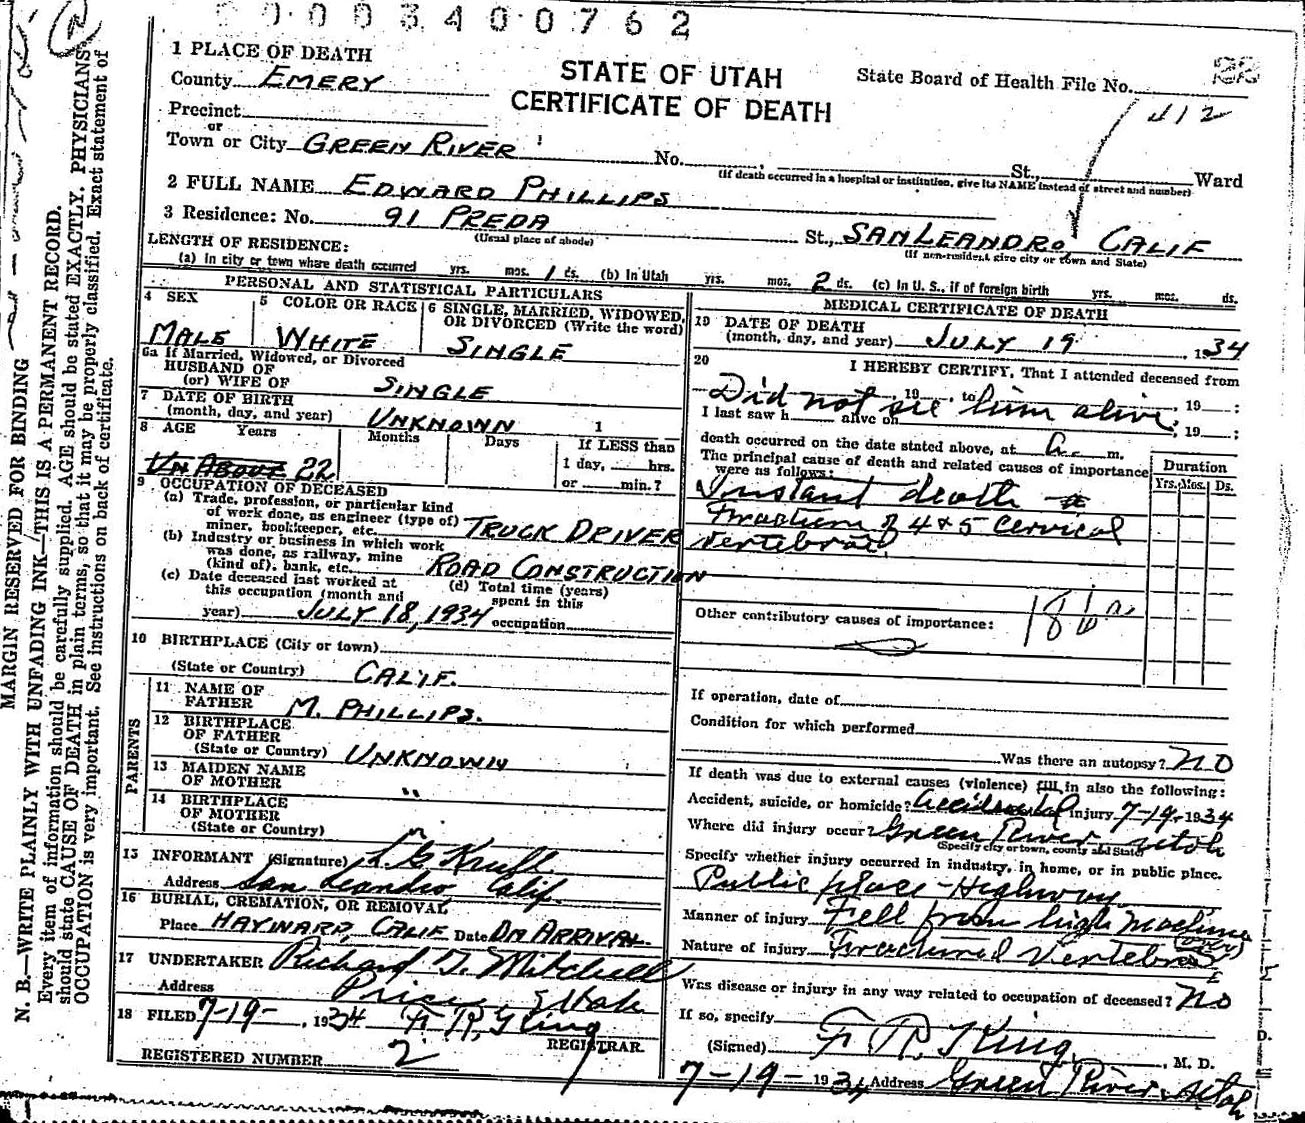 0000340 0762
1 PLACE OF DEATH
County EMERY
STATE OF UTAH
CERTIFICATE OF DEATH
State Board of Health File No. 22
412
Precinct
or
Town or City GREEN RIVER No. St., Ward
(If death occurred in a hospital or institution, give its NAME instead of street and number)
2 FULL NAME EDWARD PHILLIPS
3 Residence: No. 91 PREDA St., SAN LEANDRO, CALIF
(Usual place of abode) (If non-resident, give city or town and State)
LENGTH OF RESIDENCE:
(a) In city or town where death occurred yrs. mos. 1 ds. (b) In Utah yrs. mos. 2 ds. (c) In U. S., if of foreign birth yrs. mos. ds.
PERSONAL AND STATISTICAL PARTICULARS
4 SEX
MALE
5 COLOR OR RACE
WHITE
6 SINGLE, MARRIED, WIDOWED,
OR DIVORCED (Write the word)
SINGLE
6a If Married, Widowed, or Divorced
HUSBAND OF
(or) WIFE OF SINGLE
7 DATE OF BIRTH
(month, day, and year) UNKNOWN 1
8 AGE Years Months Days If LESS than
1 day, hrs.
or min.?
UN ABOUT 22
9 OCCUPATION OF DECEASED
(a) Trade, profession, or particular kind
of work done, as engineer (type of)
miner, bookkeeper, etc. TRUCK DRIVER
(b) Industry or business in which work
was done, as railway, mine
(kind of), bank, etc. ROAD CONSTRUCTION
(c) Date deceased last worked at
this occupation (month and
year) JULY 18, 1934
(d) Total time (years)
spent in this
occupation
10 BIRTHPLACE (City or town)
(State or Country) CALIF.
PARENTS
11 NAME OF
FATHER M. PHILLIPS.
12 BIRTHPLACE
OF FATHER
(State or Country) UNKNOWN
13 MAIDEN NAME
OF MOTHER "
14 BIRTHPLACE
OF MOTHER
(State or Country) "
15 INFORMANT (Signature)
Address San Leandro, Calif.
16 BURIAL, CREMATION, OR REMOVAL
Place HAYWARD, CALIF Date ON ARRIVAL.
17 UNDERTAKER Richard T. Mitchell
Address Price, Utah
18 FILED 7-19-, 1934 F. R. King
REGISTRAR.
REGISTERED NUMBER 2
MEDICAL CERTIFICATE OF DEATH
19 DATE OF DEATH
(month, day, and year) JULY 19, 1934
20 I HEREBY CERTIFY, That I attended deceased from
, 19, to, 19 :
Did not see him alive
I last saw h alive on, 19 ;
death occurred on the date stated above, at a. m.
The principal cause of death and related causes of importance
were as follows:
Duration
Yrs. Mos. Ds.
Instant death
fracture of 4 & 5 Cervical
vertebrae
Other contributory causes of importance:
If operation, date of
Condition for which performed
Was there an autopsy? NO
If death was due to external causes (violence) fill in also the following:
Accident, suicide, or homicide? Accidental injury 7-19-1934
Where did injury occur? Green River Utah
(Specify city or town, county and State)
Specify whether injury occurred in industry, in home, or in public place.
Public place - Highway
Manner of injury Fell from high machine
Nature of injury Fractured Vertebrae
Was disease or injury in any way related to occupation of deceased? No
If so, specify
(Signed) F. R. King, M. D.
7-19-1934 Address Green River, Utah
MARGIN RESERVED FOR BINDING
N. B.—WRITE PLAINLY WITH UNFADING INK—THIS IS A PERMANENT RECORD.
Every item of information should be carefully supplied. AGE should be stated EXACTLY. PHYSICIANS
should state CAUSE OF DEATH in plain terms, so that it may be properly classified. Exact statement of
OCCUPATION is very important. See instructions on back of certificate.